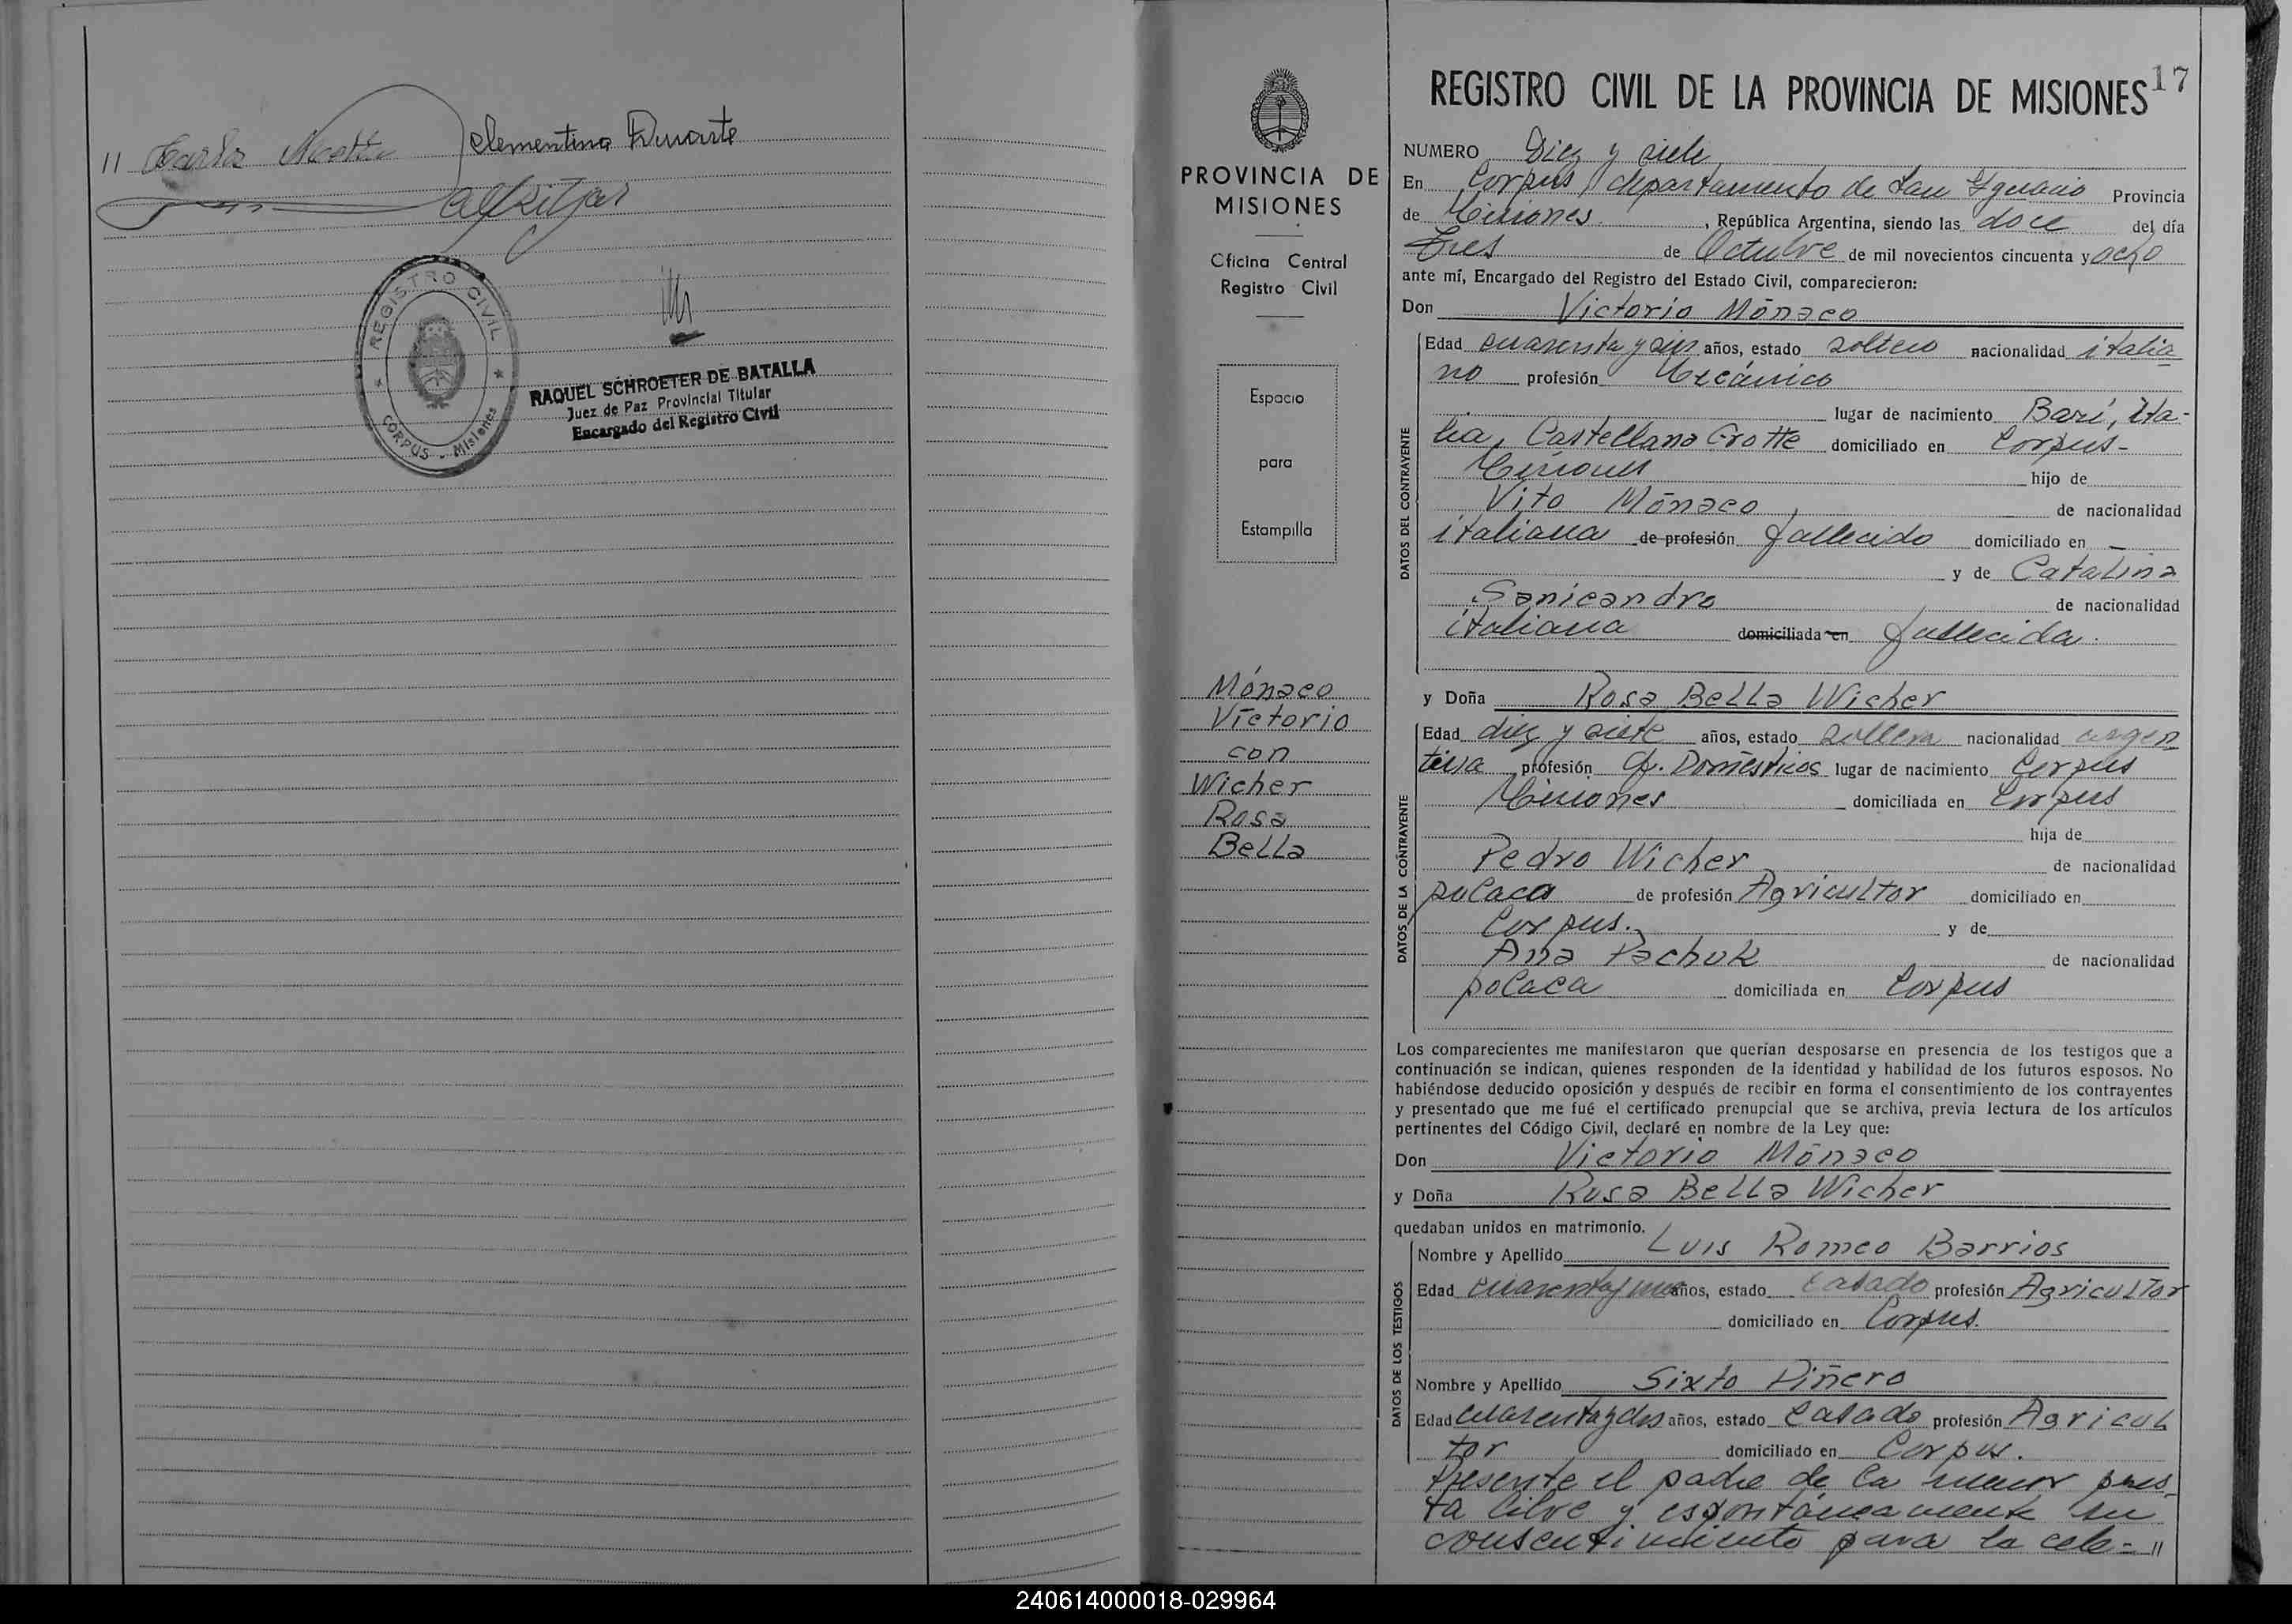 11 Acosta Clementina Duarte
REGISTRO CIVIL
CORPUS - Misiones
RAQUEL SCHROETER DE BATALLA
Juez de Paz Provincial Titular
Encargado del Registro Civil
PROVINCIA DE
MISIONES
Oficina Central
Registro Civil
Espacio
para
Estampilla
Mónaco
Victorio
con
Wicher
Rosa
Bella
REGISTRO CIVIL DE LA PROVINCIA DE MISIONES 17
NUMERO Diez y siete
En Corpus, departamento de San Ygnacio Provincia
de Misiones, República Argentina, siendo las doce del día
tres de Octubre de mil novecientos cincuenta y ocho
ante mí, Encargado del Registro del Estado Civil, comparecieron:
Don Victorio Mónaco
DATOS DEL CONTRAYENTE
Edad cuarenta y seis años, estado soltero nacionalidad italia
no profesión Mecánico
lugar de nacimiento Bari, Ita-
lia, Castellana Grotte domiciliado en Corpus-
Misiones hijo de
Vito Mónaco de nacionalidad
italiana de profesión fallecido domiciliado en —
y de Catalina
Sanicandro de nacionalidad
italiana domiciliada en fallecida.
y Doña Rosa Bella Wicher
DATOS DE LA CONTRAYENTE
Edad diez y siete años, estado soltera nacionalidad argen
tina profesión Q. Domésticos lugar de nacimiento Corpus
Misiones domiciliada en Corpus
hija de
Pedro Wicher de nacionalidad
polaca de profesión Agricultor domiciliado en
Corpus. y de
Ana Pachuk de nacionalidad
polaca domiciliada en Corpus
Los comparecientes me manifestaron que querían desposarse en presencia de los testigos que a
continuación se indican, quienes responden de la identidad y habilidad de los futuros esposos. No
habiéndose deducido oposición y después de recibir en forma el consentimiento de los contrayentes
y presentado que me fué el certificado prenupcial que se archiva, previa lectura de los artículos
pertinentes del Código Civil, declaré en nombre de la Ley que:
Don Victorio Mónaco
y Doña Rosa Bella Wicher
quedaban unidos en matrimonio.
DATOS DE LOS TESTIGOS
Nombre y Apellido Luis Romeo Barrios
Edad cuarenta y un años, estado casado profesión Agricultor
domiciliado en Corpus.
Nombre y Apellido Sixto Piñero
Edad cuarenta y dos años, estado casado profesión Agricul
tor domiciliado en Corpus.
Presente el padre de la menor pres
ta libre y espontáneamente su
consentimiento para la cele=11
240614000018-029964